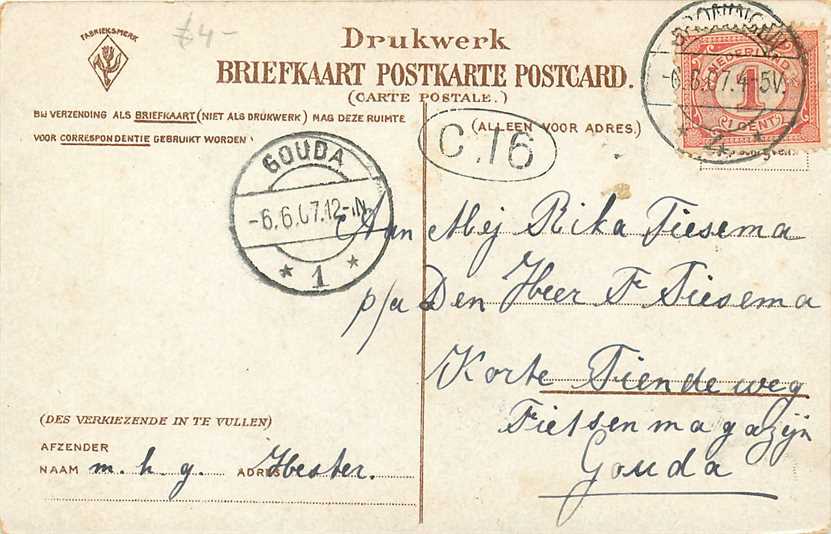 FABRIEKSMERK
£4-
Drukwerk
BRIEFKAART POSTKARTE POSTCARD.
(CARTE POSTALE.)
BIJ VERZENDING ALS BRIEFKAART (NIET ALS DRUKWERK) MAG DEZE RUIMTE
VOOR CORRESPONDENTIE GEBRUIKT WORDEN
(ALLEEN VOOR ADRES.)
C.16
GRONINGEN
-6.6.07.4-5V.
* 2 *
NEDERLAND
1
1 CENT
GOUDA
-6.6.07.12-1N
* 1 *
Aan Mej Rika Tiesema
p/a Den Heer F Tiesema
Korte Tiendeweg
Fietsenmagazijn
Gouda
(DES VERKIEZENDE IN TE VULLEN)
AFZENDER
NAAM m. h. g. ADRES Hester.